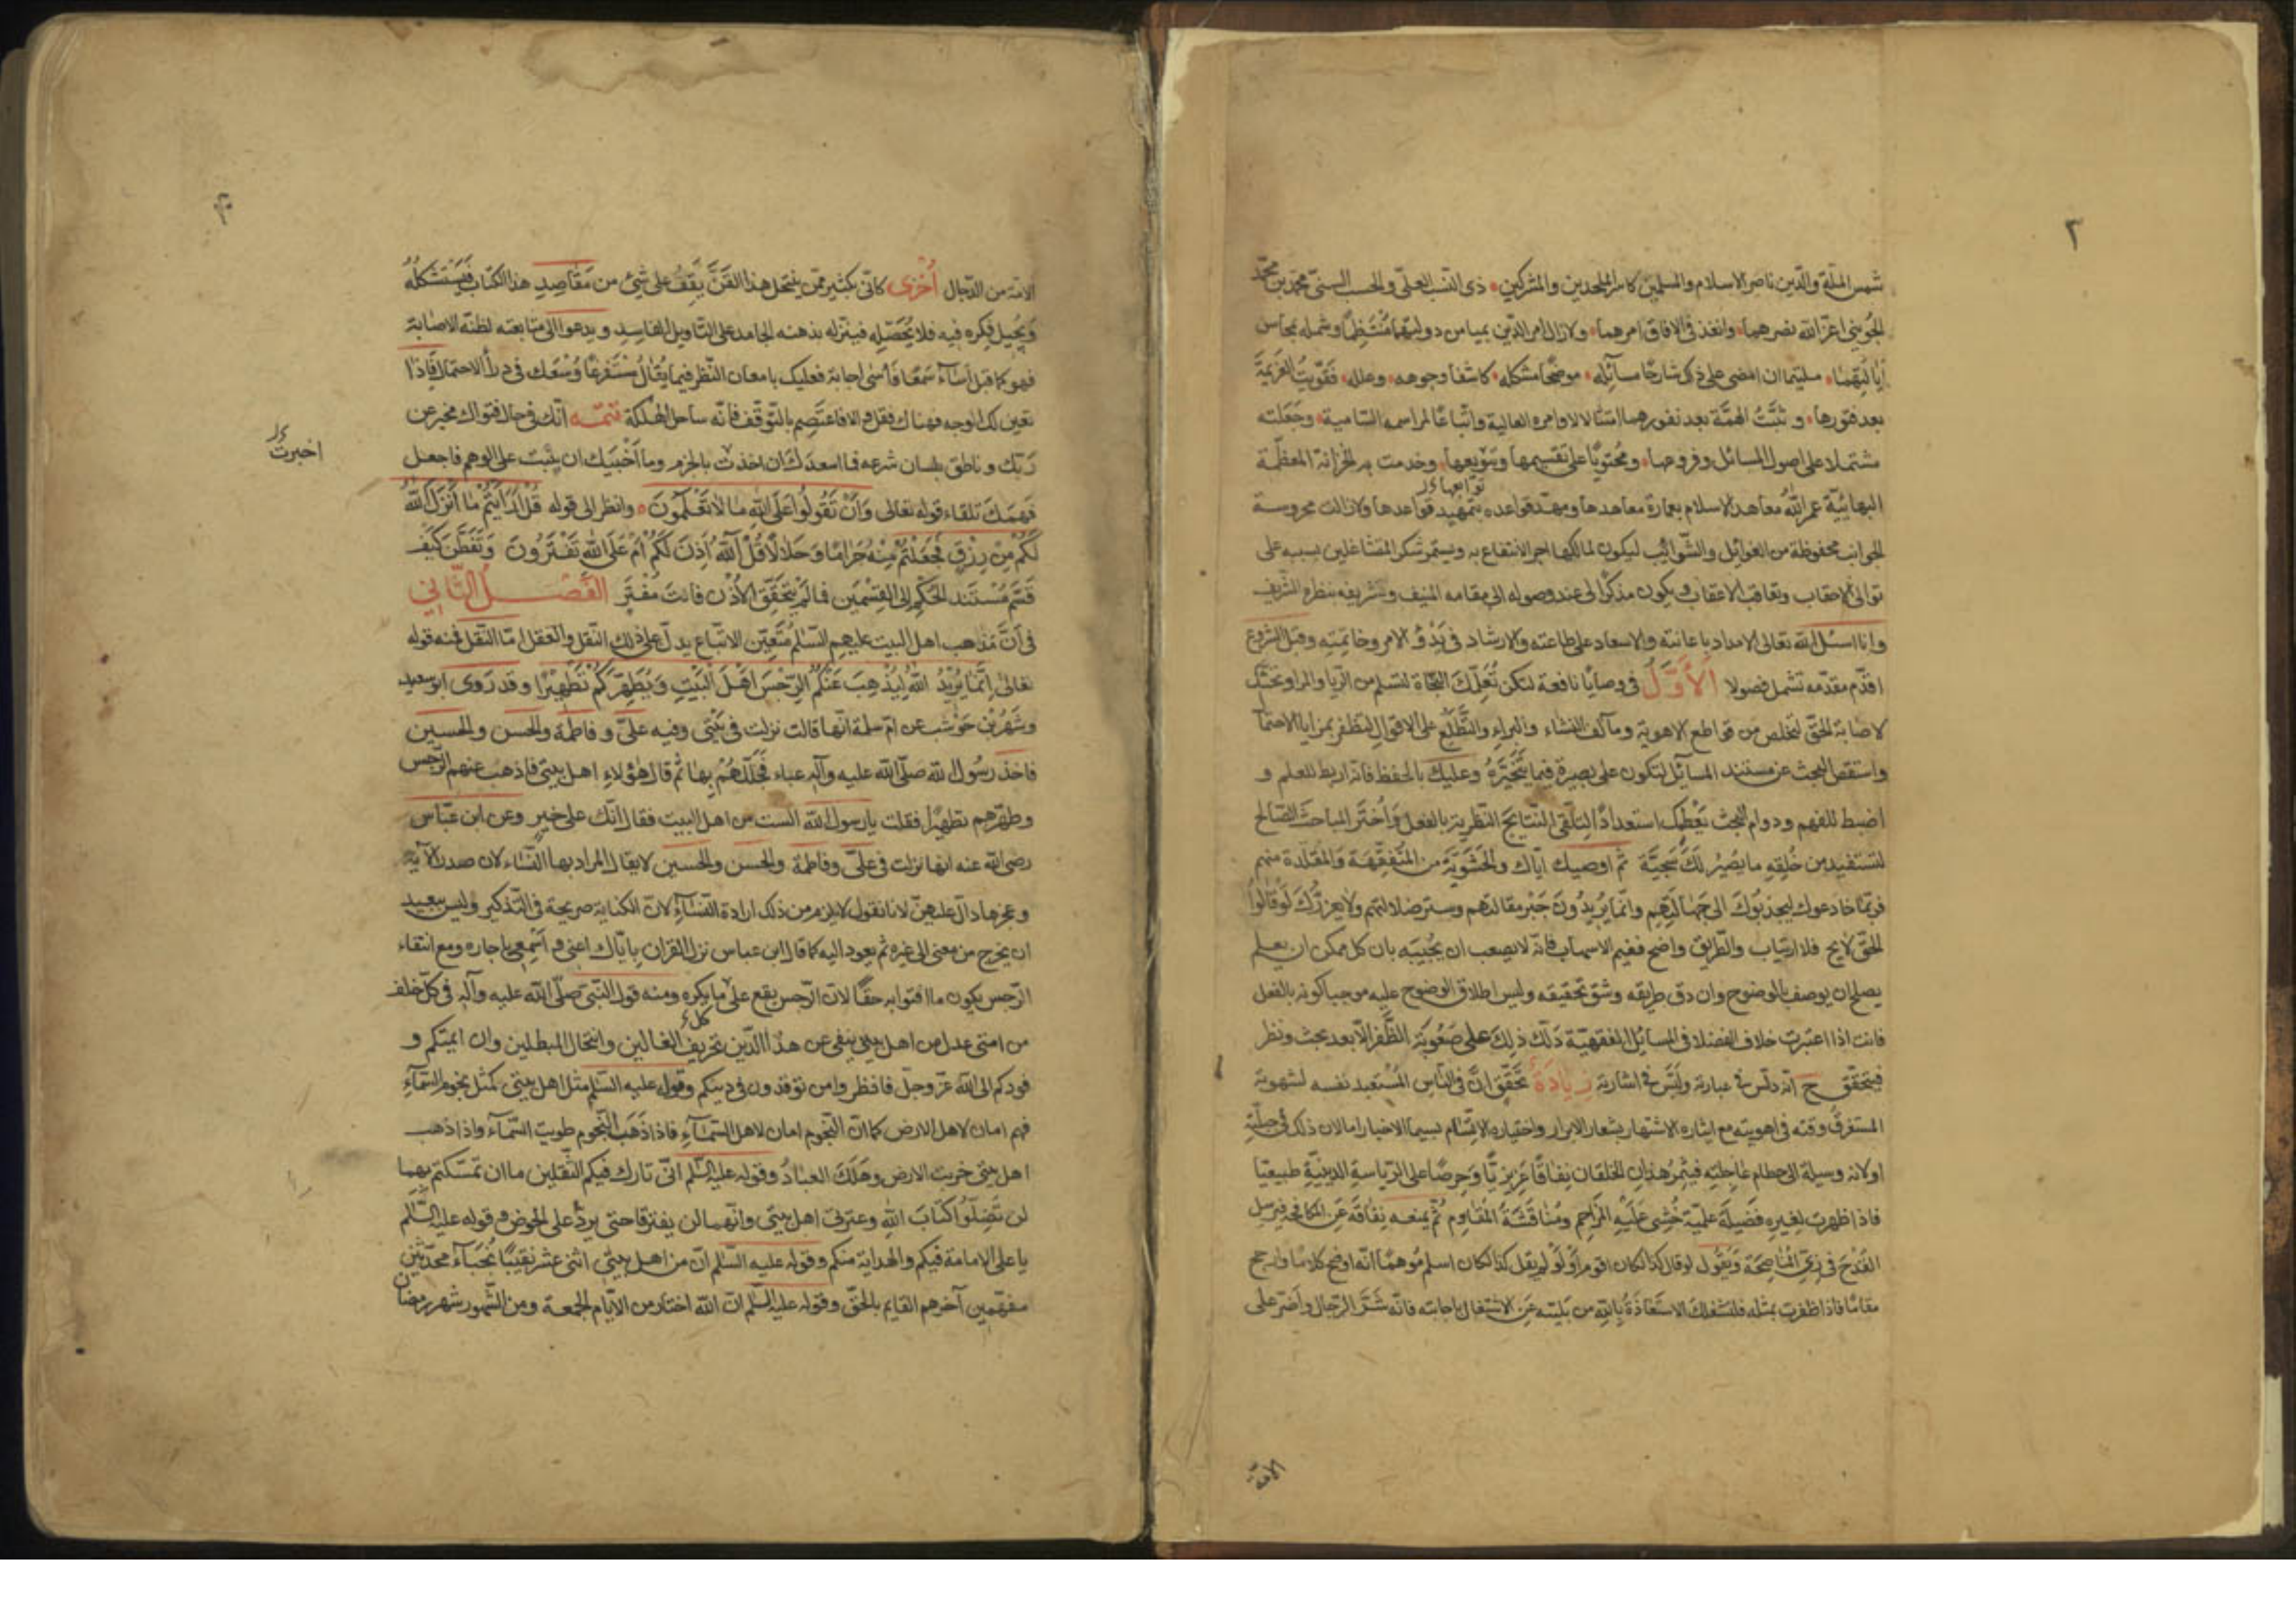 ٢
شمس الملة والدين ناصر الاسلام والمسلمين كاسر الملحدين والمشركين ذى النسب العلى والحسب السنى محمد بن محمد
الجوينى اعز الله نصرهما وانفذ فى الافاق امرهما ولازال امر الدين بميامن دولتهما منتظما وشمله بمحاسن
ايالتهما ملتئما ان امضى على ذلك شارحا مسائله موضحا مشكله كاشفا وجوهه وعلله فقويت العزيمة
بعد فتورها وثبت الهمة بعد نفورها امتثالا لاوامره العالية واتباعا لمراسمه السامية وجعلته
مشتملا على اصول المسائل وفروعها ومحتويا على تقسيمها وتنويعها وخدمت به الخزانة المعظمة
البهائية عمر الله معاهد الاسلام بعمارة معاهدها ومهد قواعده بتمهيد قواعدها ولازالت محروسة
الجوانب محفوظة من الغوائل والشوائب ليكون لمالكها اجر الانتفاع به ويستمر شكر المتشاغلين بسببه على
توالى الاحقاب وتعاقب الاعقاب ويكون مذكرا لى عند وصوله الى مقامه المنيف وتشريفه بنظره الشريف
وانا اسئل الله تعالى الامداد باعانته والاسعاد على طاعته والارشاد فى بدؤ الامر وخاتمته وقبل الشروع
اقدم مقدمة تشتمل فصولا الأول فى وصايا نافعة لتكن تعلمك النجاة لتسلم من الريا والمراء وبحثك
لاصابة الحق لتخلص من قواطع الاهوية ومآلف النشاء والبراء والتطلع على الاقوال لتظفر بمزايا الاحتما
واستقص البحث عن مستند المسائل لتكون على بصيرة فيما تتخيره وعليك بالحفظ فانه اربط للعلم و
اضبط للفهم ودوام البحث يعطيك استعدادا لتلقى النتايج النظرية بالفعل واختر المباحث الصالح
لتستفيد من خلقه ما يصير لك سجية ثم اوصيك اياك والحشوية من المتفقهة والمقلدة منهم
فربما خادعوك ليجذبوك الى جهالتهم وانما يريدون جبر مقالتهم وستر ضلالتهم ولا يغرنك لو قالوا
الحق لايح فلا ارتياب والطريق واضح ففيم الاسهاب فانه لا يصعب ان يجيبه بان كل ممكن ان يعلم
يصلح ان يوصف بالوضوح وان دق طريقه وشق تحقيقه وليس اطلاق الوضوح عليه موجبا كونه بالفعل
فانت اذا اعتبرت خلاف الفضلا فى المسائل الفقهية دلك ذلك على صعوبة الظفر الا بعد بحث ونظر
فيتحقق ح انه دلس فى عبارته ولبس فى اشارته زيادة تحقق ان فى الناس المستعبد نفسه لشهوته
المستغرق وقته فى اهويته مع ايثاره الاشتهار بشعار الابرار واختياره الاتسام بسيما الاخيار اما لان ذلك فى جبلته
او لانه وسيلة الى حطام عاجلته فيثمر هذان الخلقان نفاقا غريزيا وحرصا على الرياسة الدينية طبيعيا
فاذا ظهرت لغيره فضيلة علمية خشى غلبة المزاحم ومناقشة المقاوم ثم يمنعه نفاقه عن المكافحة فيرسل
القدح فى زى المناصحة ويقول لو قال كذا لكان اقوم او لو لم يقل كذا لكان اسلم موهما انه اوضح كلاما وارجح
مقاما فاذا ظفرت بمثله فلتشغلك الاستعاذة بالله من بليته عن الاشتغال باجابته فانه شر الرجال واضر على
الامة
الامة من الدجال أخرى كانى بكثير ممن ينتحل هذا الفن يقف على شئ من مقاصد هذا الكتاب فيستشكله
ويجيل فكره فيه فلا يحصله فينزله بذهنه الجامد على التاويل الفاسد ويدعوا الى متابعته لظنه الاصابة
فهو كما قيل أساء سمعا فأسى اجابة فعليك بامعان النظر فيما يقال مستفرغا وسعك فى درأ الاحتمال فاذا
تعين لك الوجه فهناك فقل والا فاعتصم بالتوقف فانه ساحل الهلكة تتمه انك فى حال فتواك مخبر عن
اخبرت
ربك وناطق بلسان شرعه فما اسعدك ان اخذت بالجزم وما اخيبك ان بنيت على الوهم فاجعل
فهمك تلقاء قوله تعالى وأن تقولوا على الله ما لا تعلمون وانظر الى قوله قل أرأيتم ما أنزل الله
لكم من رزق فجعلتم منه حراما وحلالا قل آلله أذن لكم أم على الله تفترون وتفطن كيف
قسم مستند الحكم الى القسمين فما لم يتحقق الاذن فانت مفتر الفصل الثانى
فى ان مذهب اهل البيت عليهم السلم متعين الاتباع يدل على ذلك النقل والعقل اما النقل فمنه قوله
تعالى إنما يريد الله ليذهب عنكم الرجس أهل البيت ويطهركم تطهيرا وقد روى ابو سعيد
وشهر بن حوشب عن ام سلمة انها قالت نزلت فى بيتى وفيه على وفاطمة والحسن والحسين
فاخذ رسول الله صلى الله عليه وآله عباء فجللهم بها ثم قال هؤلاء اهل بيتى فاذهب عنهم الرجس
وطهرهم تطهيرا فقلت يا رسول الله الست من اهل البيت فقال انك على خير وعن ابن عباس
رضى الله عنه انها نزلت فى على وفاطمة والحسن والحسين لا يقال المراد بها النساء لان صدر الآية
وعجزها دال عليهن لانا نقول لا يلزم من ذلك ارادة النساء لان الكناية صريحة فى التذكير وليس ببعيد
ان يخرج من معنى الى غيره ثم يعود اليه كما قال ابن عباس نزل القران باياك اعنى واسمعى يا جاره ومع انتفاء
الرجس يكون ما افتوا به حقا لان الرجس يقع على ما يكره ومنه قول النبى صلى الله عليه وآله فى كل خلف
من امتى عدل من اهل بيتى ينفى عن هذا الدين تحريف الغالين وانتحال المبطلين وان ايمتكم و
فودكم الى الله عز وجل فانظروا من توفدون فى دينكم وقوله عليه السلم مثل اهل بيتى كمثل نجوم السماء
فهم امان لاهل الارض كما ان النجوم امان لاهل السماء فاذا ذهب النجوم طويت السماء واذا ذهب
اهل بيتى خربت الارض وهلك العباد وقوله عليه السلم انى تارك فيكم الثقلين ما ان تمسكتم بهما
لن تضلوا كتاب الله وعترتى اهل بيتى وانهما لن يفترقا حتى يردا على الحوض وقوله عليه السلم
يا على الامامة فيكم والهداية منكم وقوله عليه السلم ان من اهل بيتى اثنى عشر نقيبا نجباء محدثين
مفهمين آخرهم القايم بالحق وقوله عليه السلم ان الله اختار من الايام الجمعة ومن الشهور شهر رمضان